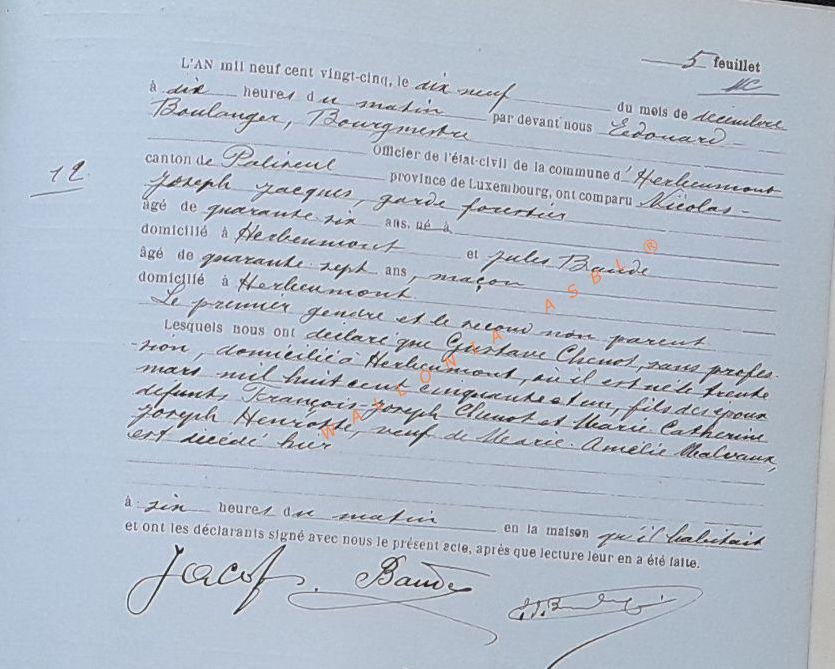 5 feuillet
L'AN mil neuf cent vingt-cinq, le dix neuf du mois de décembre
à dix heures du matin par devant nous Edouard
Boulanger, Bourgmestre
Officier de l'état-civil de la commune d'Herbeumont
12
canton de Paliseul province de Luxembourg, ont comparu Nicolas-
Joseph Jacques, garde forestier
âgé de quarante six ans, né à
domicilié à Herbeumont et Jules Baude
âgé de quarante sept ans, maçon
domicilié à Herbeumont
Le premier gendre et le second non parent
Lesquels nous ont déclaré que Gustave Chenot, sans profes-
-sion, domicilié à Herbeumont, où il est né le trente
mars mil huit cent cinquante et un, fils des époux
défunts, François-Joseph Chenot et Marie Catherine
Joseph Henrotte, veuf de Marie-Amélie Malvaux,
est décédé hier
à six heures du matin en la maison qu'il habitait
et ont les déclarants signé avec nous le présent acte, après que lecture leur en a été faite.
Baude
WALLONIA ASBL ®